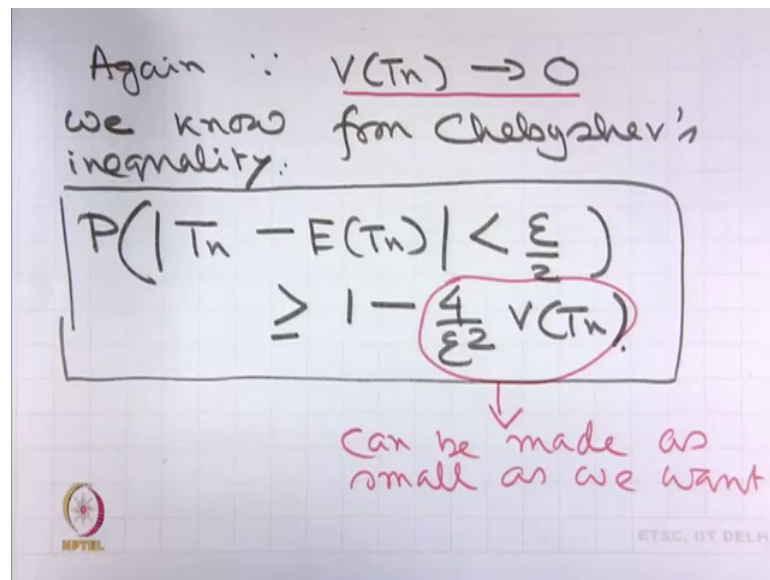 Again ∵ V(Tn) → 0
we know from Chebyshev's
inequality.
P(|Tn - E(Tn)| < ε/2)
≥ 1 - 4/ε² V(Tn).
Can be made as
small as we want
NPTEL
ETSC, IIT DELH